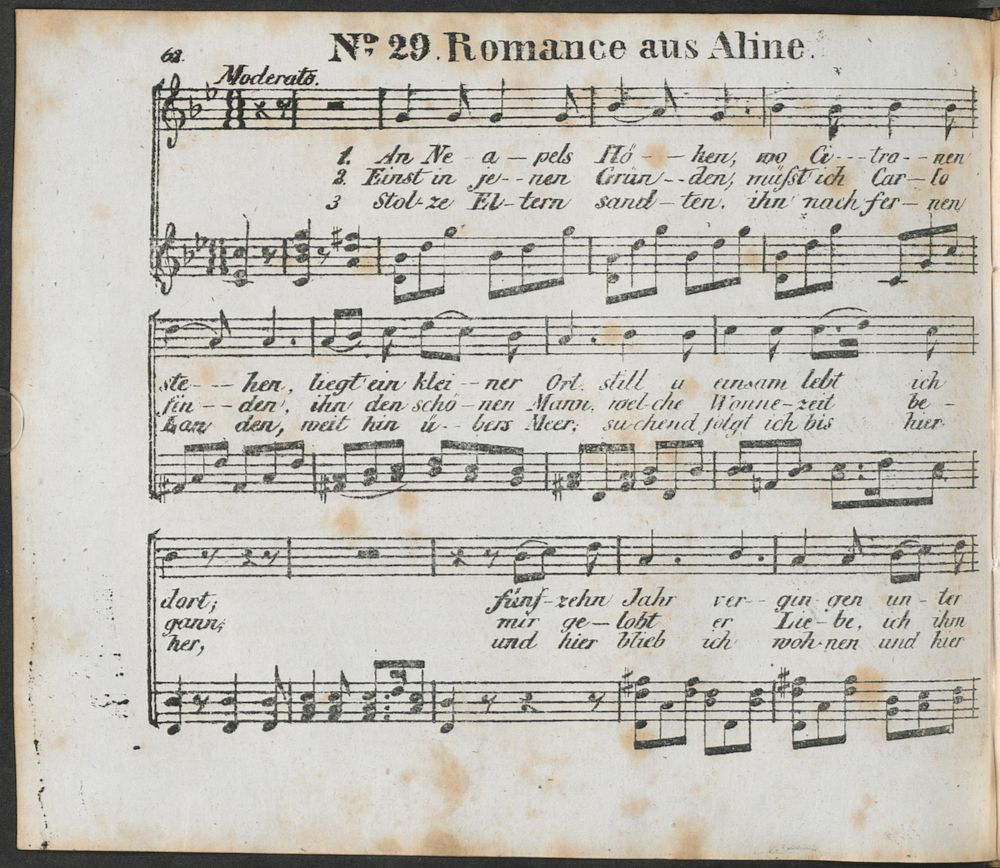 62.
No 29. Romance aus Aline.
Moderato.
1. An Ne - a - pels Hö - - hen, wo Ci - - - tra - - nen
2. Einst in je - - nen Grün - - den, müſst ich Car - lo
3 Stol - ze El - tern sand - ten, ihn nach fer - nen
ste - - - hen, liegt ein klei - - ner Ort, still u einsam lebt ich
fin - - den, ihn den schö - nen Mann, wel - che Wonne - zeit be -
Lan den, weit hin ü - - bers Meer; su chend folgt ich bis hier
dort; fünf - zehn Jahr ver - - gin - gen un - ter
gann; mir ge - lobt er Lie - be, ich ihm
her, und hier blieb ich woh - nen und hier